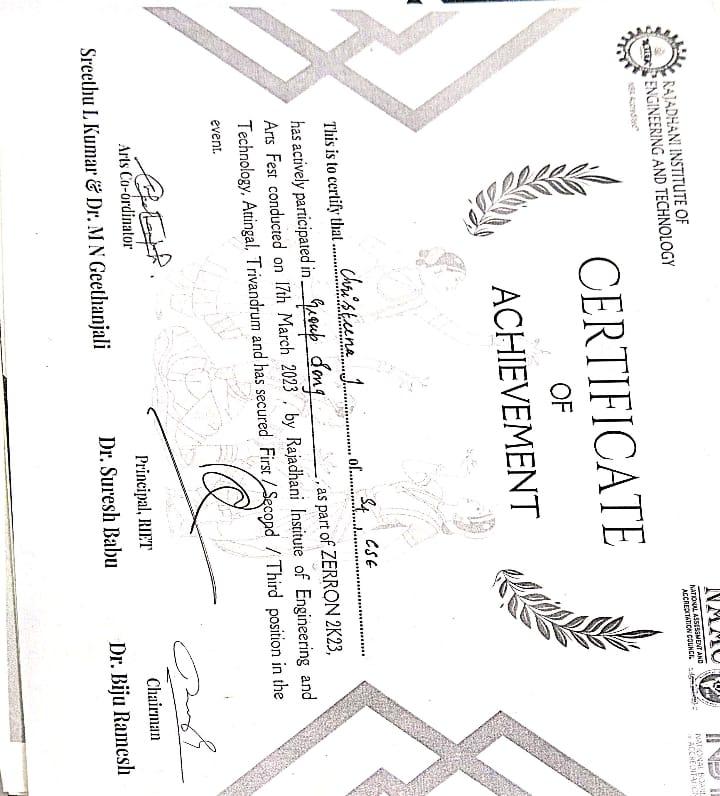 RAJADHANI INSTITUTE OF
ENGINEERING AND TECHNOLOGY
NBA Accredited
NAAC
NATIONAL ASSESSMENT AND
ACCREDITATION COUNCIL
NATIONAL BOARD
of ACCREDITATION
CERTIFICATE
OF
ACHIEVEMENT
This is to certify that Christeena J of S4, CSE
has actively participated in Group Song, as part of ZERRON 2K23,
Arts Fest conducted on 17th March 2023 , by Rajadhani Institute of Engineering and
Technology, Attingal, Trivandrum and has secured First / Second / Third position in the
event.
Arts Co-ordinator
Sreethu L Kumar & Dr. M N Geethanjali
Principal, RIET
Dr. Suresh Babu
Chairman
Dr. Biju Ramesh